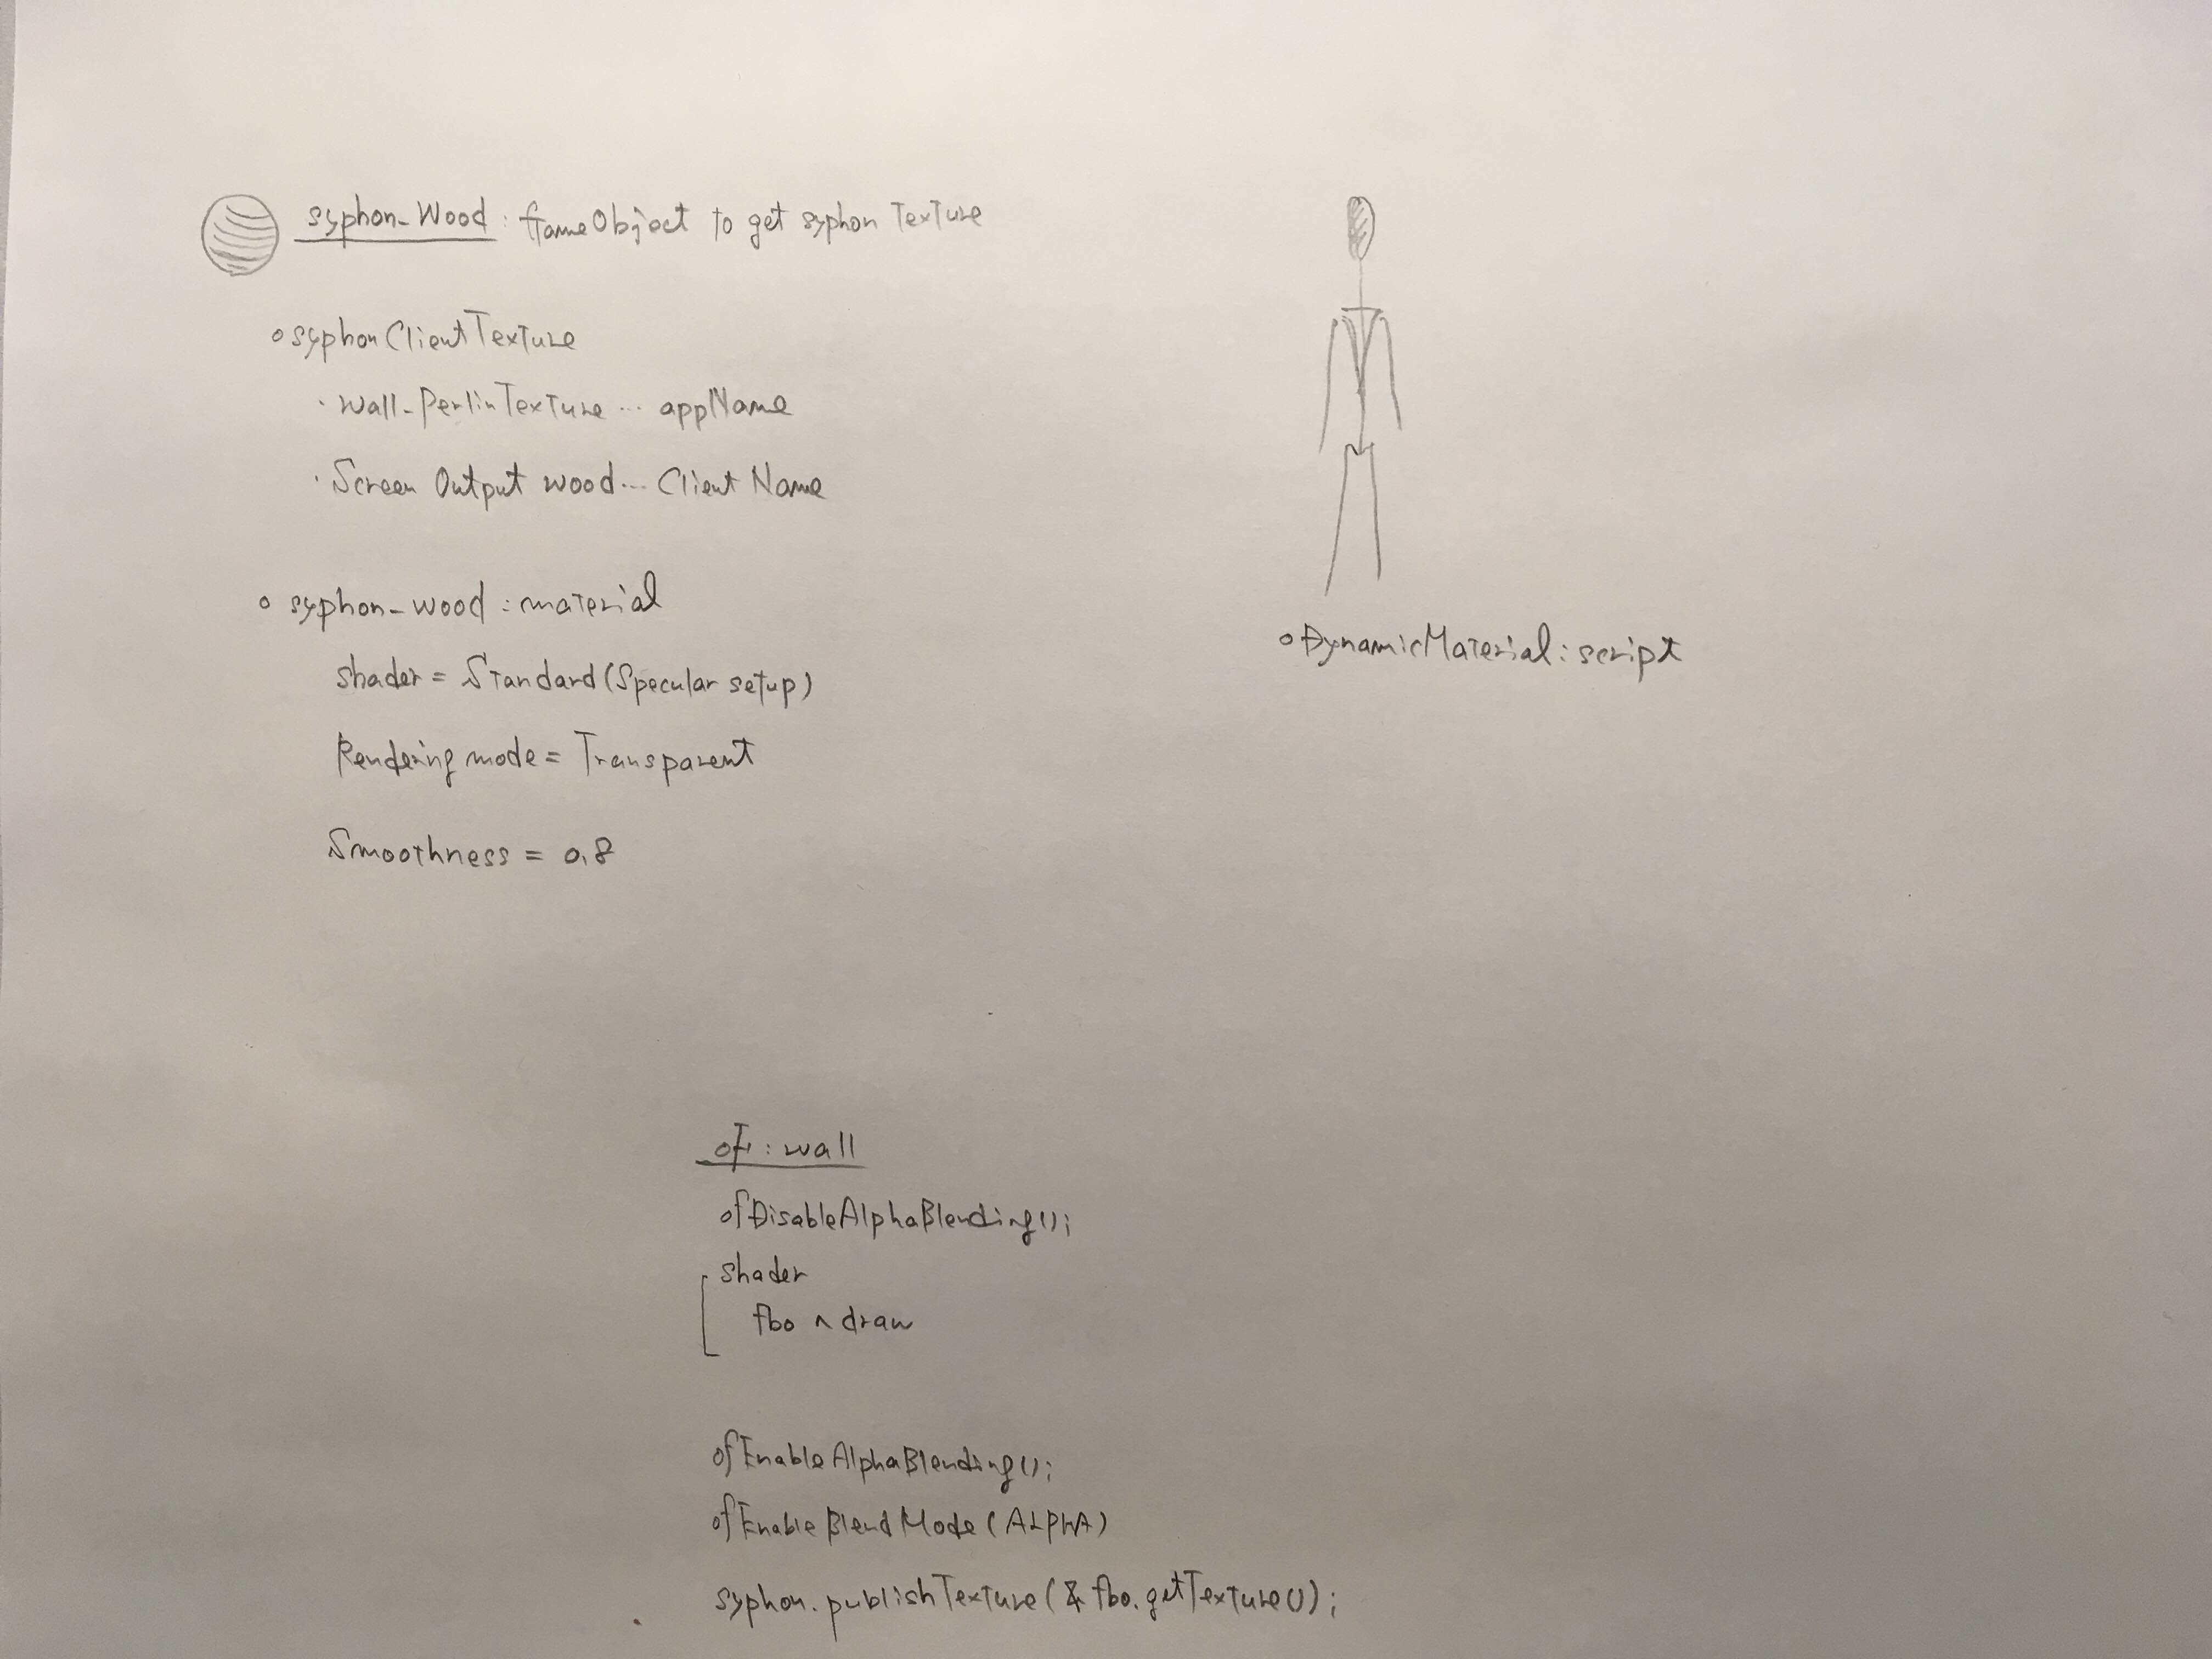 syphon-Wood : frameObject to get syphon Texture
○ syphonClientTexture
・wall-PerlinTexture … appName
・Screen Output wood … Client Name
○ syphon-wood : material
shader = Standard (Specular setup)
Rendering mode = Transparent
Smoothness = 0.8
○ DynamicMaterial : script
oF : wall
ofDisableAlphaBlending();
shader
fbo へ draw
ofEnableAlphaBlending();
ofEnableBlendMode (ALPHA)
syphon.publishTexture (& fbo.getTexture());